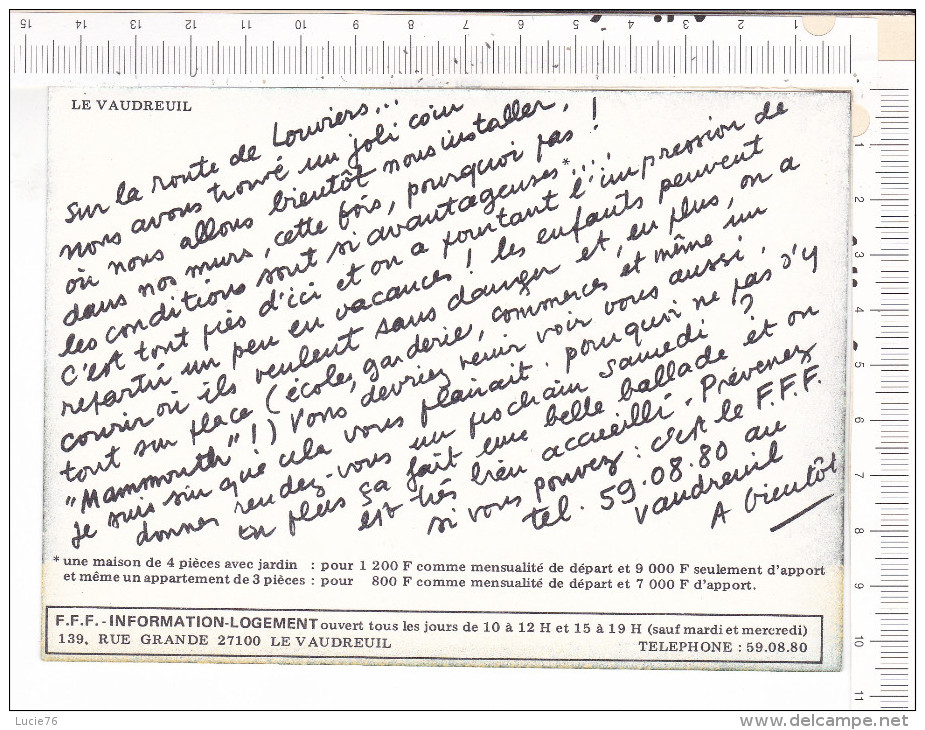 LE VAUDREUIL
sur la route de Louviers...
nous avons trouvé un joli coin
où nous allons bientôt nous installer,
dans nos murs, cette fois, pourquoi pas !
les conditions sont si avantageuses*...
C'est tout près d'ici et on a pourtant l'impression de
repartir un peu en vacances ! les enfants peuvent
courir où ils veulent sans danger et, en plus, on a
tout sur place (école, garderie, commerces et même un
"Mammouth" !) Vous devriez venir voir vous aussi,
Je suis sûr que cela vous plairait. pourquoi ne pas s'y
donner rendez-vous un prochain samedi ?
En plus ça fait une belle ballade et on
est très bien accueilli - Prévenez
si vous pouvez : c'est le F.F.F.
tel. 59.08.80 au
Vaudreuil
A bientôt
* une maison de 4 pièces avec jardin : pour 1 200 F comme mensualité de départ et 9 000 F seulement d'apport
et même un appartement de 3 pièces : pour 800 F comme mensualité de départ et 7 000 F d'apport.
F.F.F. - INFORMATION-LOGEMENT ouvert tous les jours de 10 à 12 H et 15 à 19 H (sauf mardi et mercredi)
139, RUE GRANDE 27100 LE VAUDREUIL TELEPHONE : 59.08.80
15 14 13 12 11 10 9 8 7 6 5 4 3 2 1
1
2
3
4
5
6
7
8
9
10
11
Lucie76
www.delcampe.net